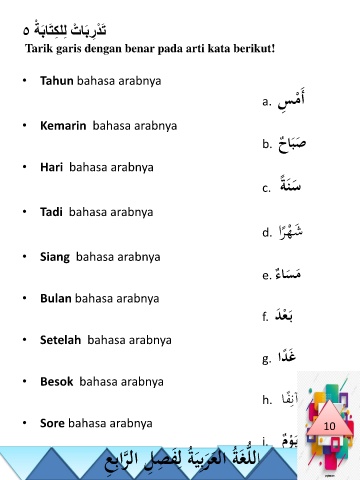 تَدْرِبَاتْ لِلكِتَابَةْ ٥
Tarik garis dengan benar pada arti kata berikut!
• Tahun bahasa arabnya
a. أَمْسِ
• Kemarin bahasa arabnya
b. صَبَاحٌ
• Hari bahasa arabnya
c. سَنَةٌ
• Tadi bahasa arabnya
d. شَهْرًا
• Siang bahasa arabnya
e. مَسَاءٌ
• Bulan bahasa arabnya
f. بَعْدَ
• Setelah bahasa arabnya
g. غَدًا
• Besok bahasa arabnya
h. آنِفًا
• Sore bahasa arabnya
i. يَوْمٌ
10
اللُّغَةُ العَرَبِيَةُ لِفَصِلِ الرَّابِعِ